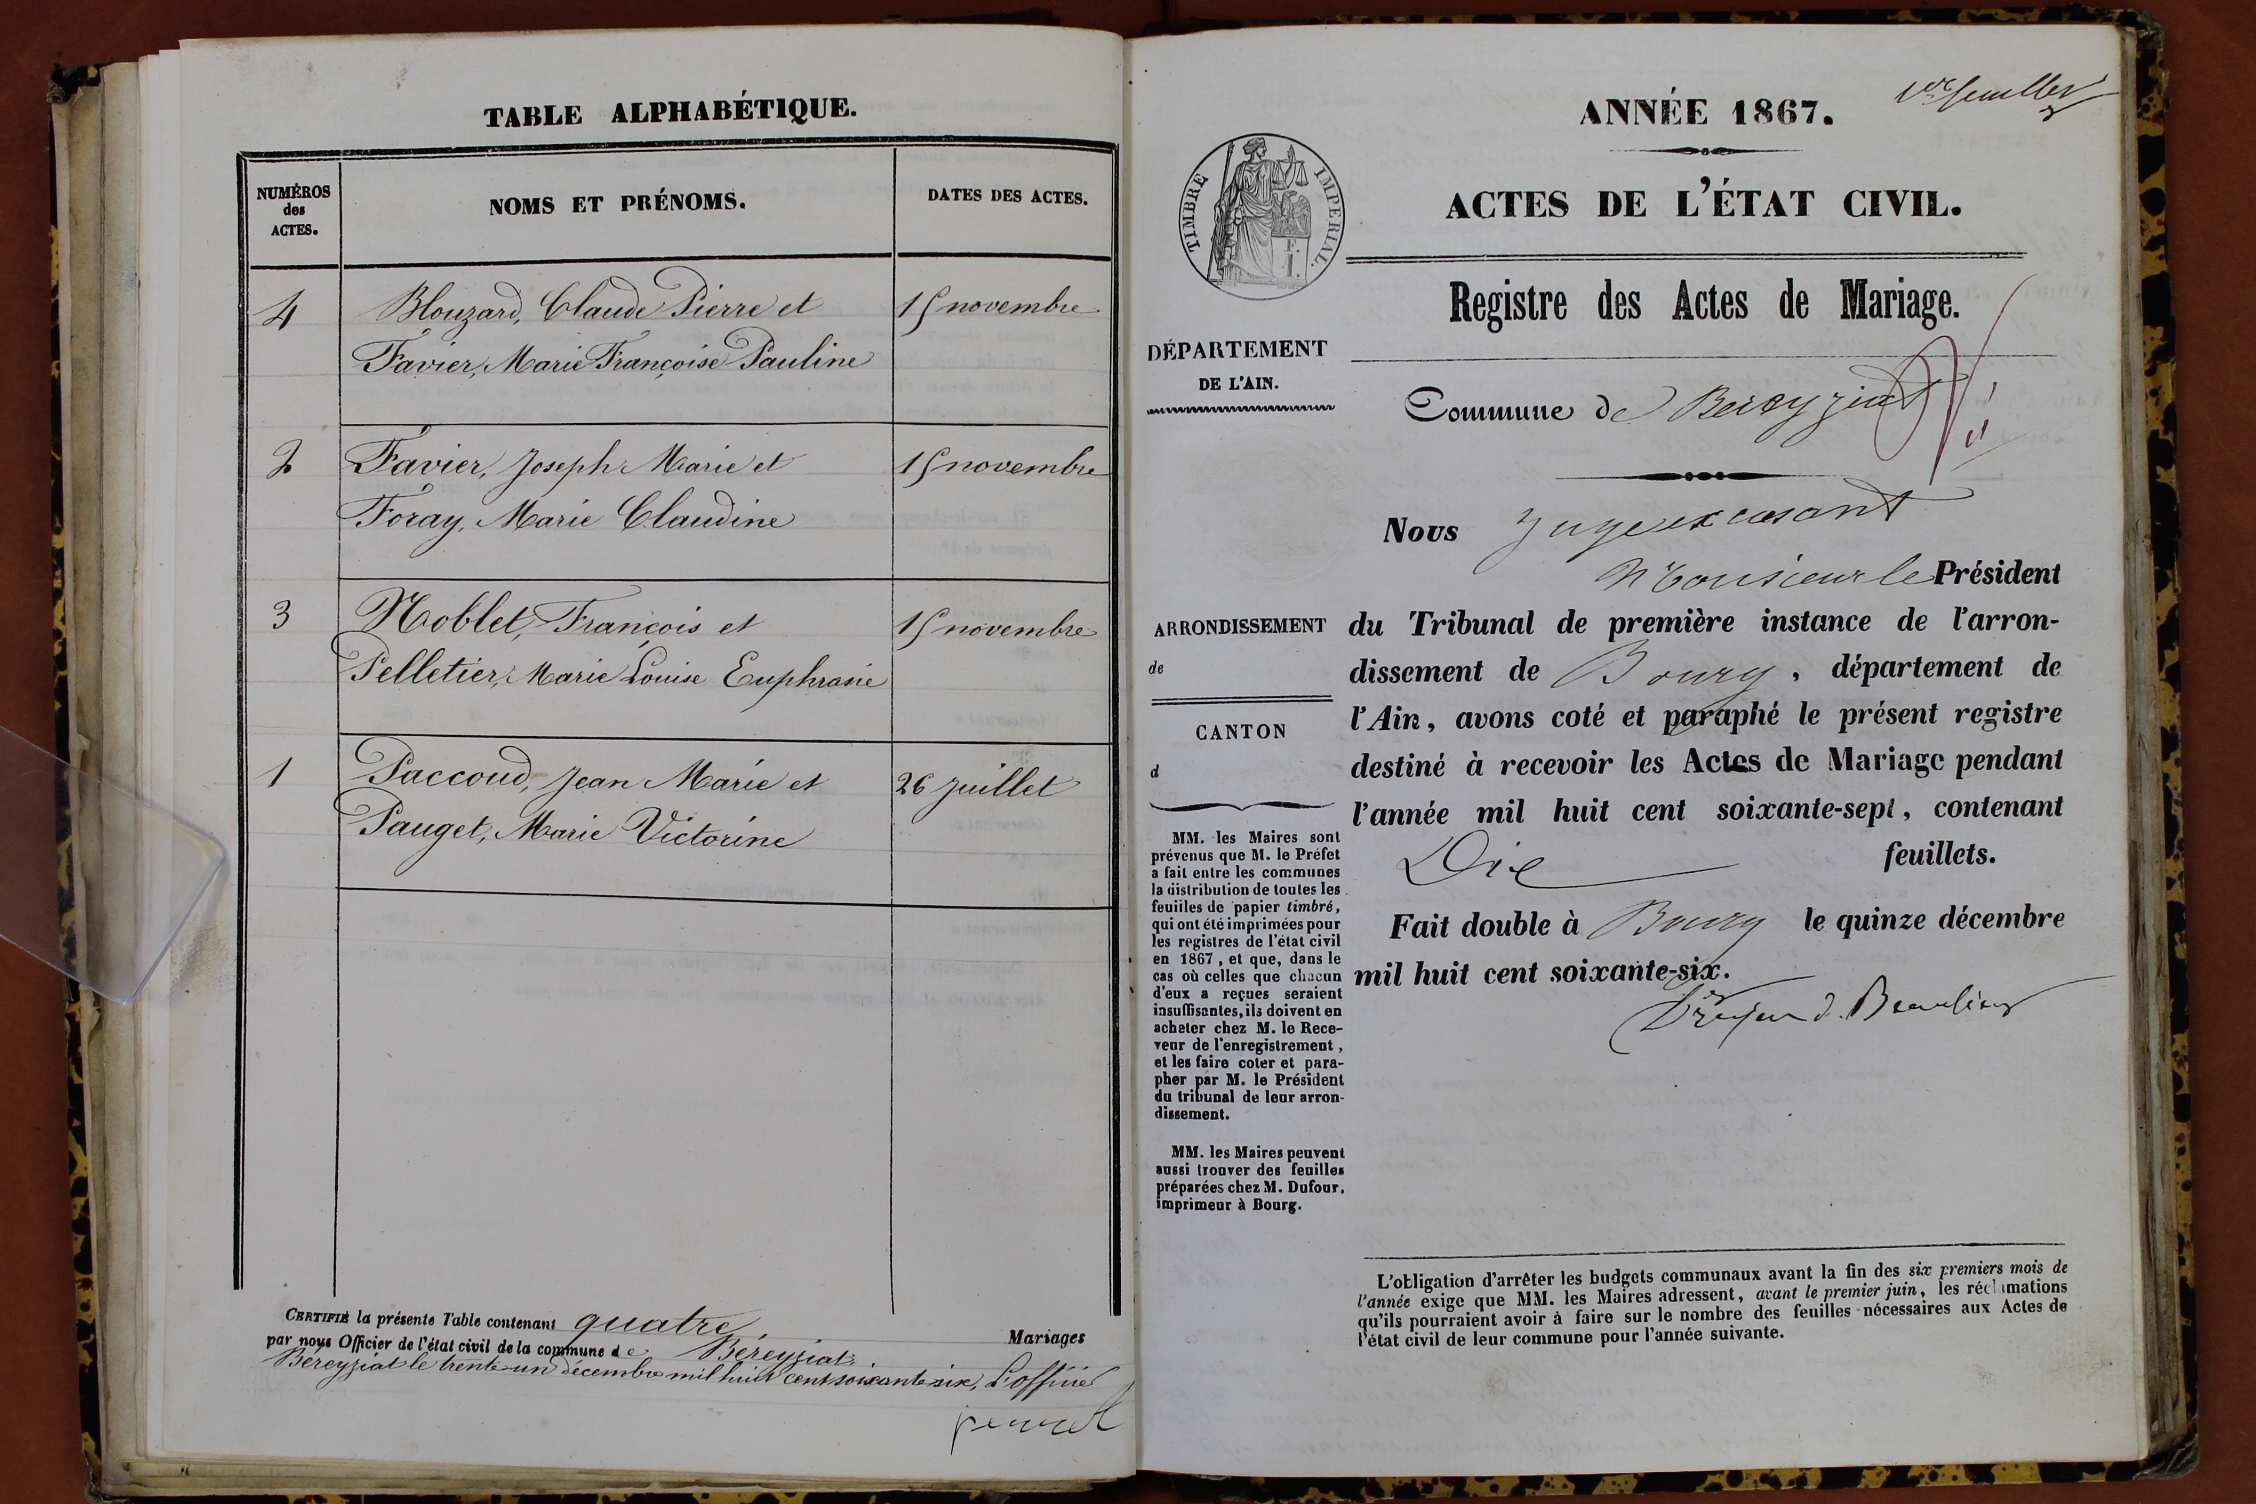 TABLE ALPHABÉTIQUE.
NUMÉROS
des
ACTES.
NOMS ET PRÉNOMS.
DATES DES ACTES.
4
Blouzard, Claude Pierre et
15 novembre
Favier, Marie Françoise Pauline
2
Favier, Joseph Marie et
15 novembre
Foray, Marie Claudine
3
Noblet, François et
15 novembre
Pelletier, Marie Louise Euphrasie
1
Paccoud, Jean Marie et
26 juillet
Pauget, Marie Victorine
CERTIFIÉ la présente Table contenant quatre Mariages
par nous Officier de l'état civil de la commune de Béreyziat.
Béreyziat le trente-un décembre mil huit cent soixante six, L'officier
1er feuillet
ANNÉE 1867.
ACTES DE L'ÉTAT CIVIL.
TIMBRE IMPÉRIAL.
Registre des Actes de Mariage.
DÉPARTEMENT
DE L'AIN.
Commune de Bereyziat
Nous Juge excusant
Monsieur le Président
ARRONDISSEMENT
de
CANTON
d
du Tribunal de première instance de l'arron-
dissement de Bourg, département de
l'Ain, avons coté et paraphé le présent registre
destiné à recevoir les Actes de Mariage pendant
l'année mil huit cent soixante-sept, contenant
Dix feuillets.
Fait double à Bourg le quinze décembre
mil huit cent soixante-six.
MM. les Maires sont
prévenus que M. le Préfet
a fait entre les communes
la distribution de toutes les
feuilles de papier timbré,
qui ont été imprimées pour
les registres de l'état civil
en 1867, et que, dans le
cas où celles que chacun
d'eux a reçues seraient
insuffisantes, ils doivent en
acheter chez M. le Rece-
veur de l'enregistrement,
et les faire coter et para-
pher par M. le Président
du tribunal de leur arron-
dissement.
MM. les Maires peuvent
aussi trouver des feuilles
préparées chez M. Dufour,
imprimeur à Bourg.
L'obligation d'arrêter les budgets communaux avant la fin des six premiers mois de
l'année exige que MM. les Maires adressent, avant le premier juin, les réclamations
qu'ils pourraient avoir à faire sur le nombre des feuilles nécessaires aux Actes de
l'état civil de leur commune pour l'année suivante.